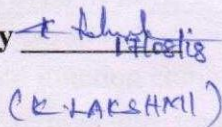 y
17/08/18
(K. LAKSHMI)